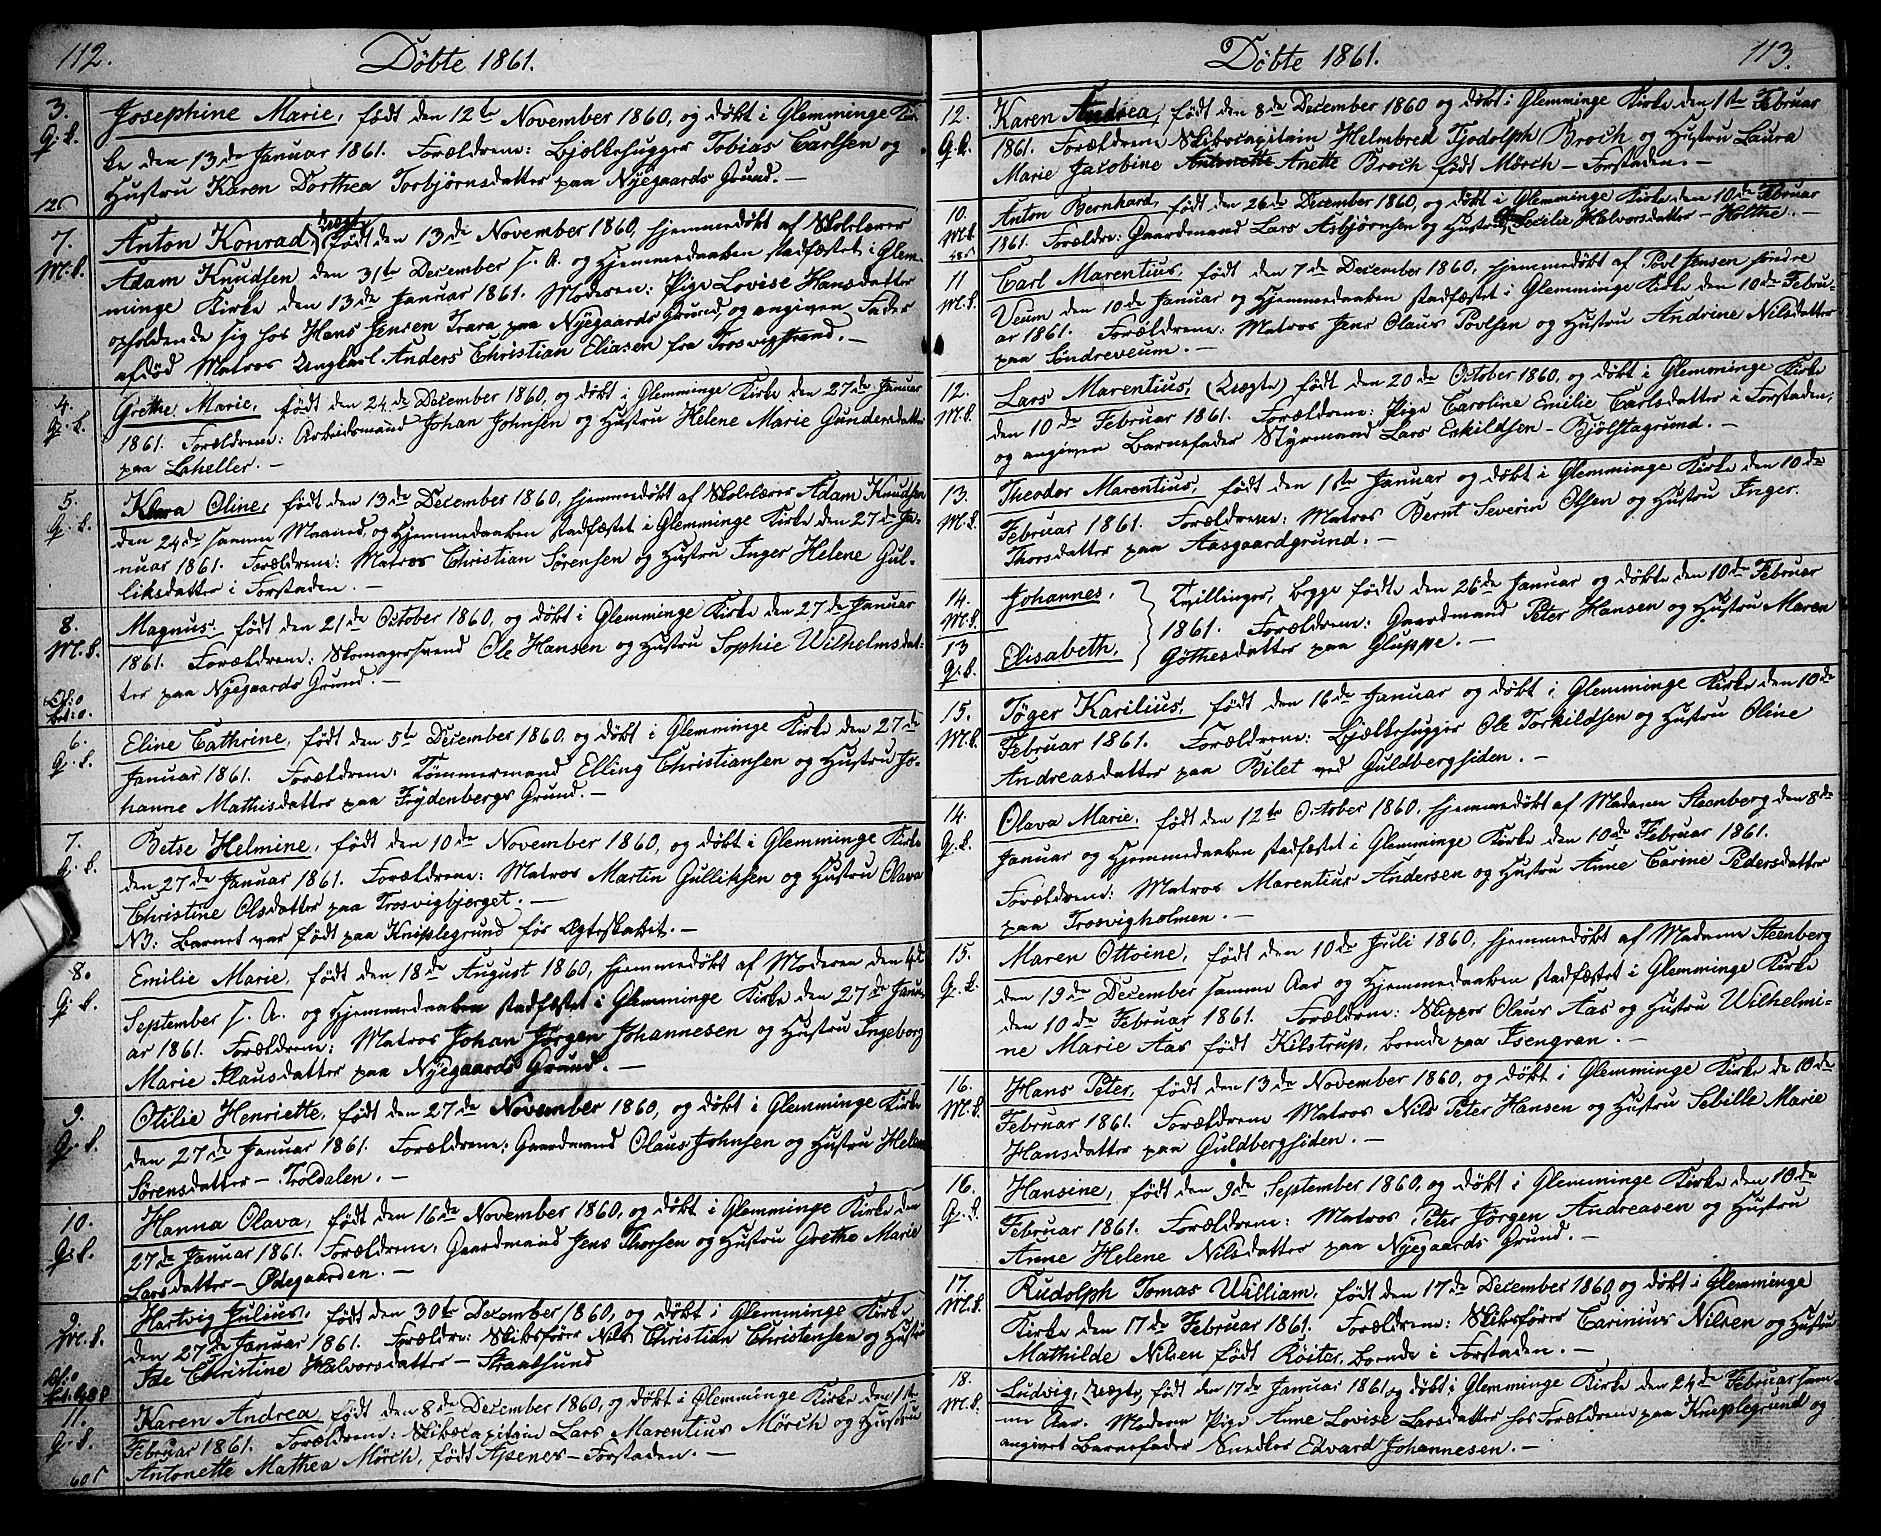 112.
Döbte 1861.
3. Josephine Marie, født den 12te November 1860, og döbt i Glemminge Kir-
G. B. ke den 13de Januar 1861. Forældrene: Bjelkehugger Tobias Carlsen og
Hustru Karen Dorthea Torbjørnsdatter paa Nyegaards Grund. —
7. Anton Konrad, (Uægte) født den 13de November 1860, hjemmedöbt af Skolelærer
M. B. Adam Knudsen den 31te December s. A. og Hjemmedaaben stadfæstet i Glem-
minge Kirke den 13de Januar 1861. Moderen: Pige Lovise Hansdatter
opholdende sig hos Hans Jensen Trara paa Nyegaards Grund, og angiven Fader
afdöd Matros Ungkarl Anders Christian Eliasen fra Trosvigstrand. —
4. Grethe Marie, født den 24de December 1860, og döbt i Glemminge Kirke den 27de Januar
G. B. 1861. Forældrene: Arbeidsmand Johan Johnsen og Hustru Helene Marie Gundersdatter
paa Laheller. —
5. Klara Oline, født den 13de December 1860, hjemmedöbt af Skolelærer Adam Knudsen
G. B. den 24de samme Maaned, og Hjemmedaaben stadfæstet i Glemminge Kirke den 27de Ja-
nuar 1861. Forældrene: Matros Christian Sørensen og Hustru Inger Helene Gul-
liksdatter i Forstaden. —
8. Magnus, født den 21de October 1860, og döbt i Glemminge Kirke den 27de Januar
M. B. 1861. Forældrene: Skomagersvend Ole Hansen og Hustru Sophie Wilhelmsdat-
ter paa Nyegaards Grund. —
6. Eline Cathrine, født den 5te December 1860, og döbt i Glemminge Kirke den 27de
G. B. Januar 1861. Forældrene: Tømmermand Elling Christiansen og Hustru Jo-
hanne Mathisdatter paa Frydenbergs Grund. —
7. Betse Helmine, født den 10de November 1860, og döbt i Glemminge Kirke
G. B. den 27de Januar 1861. Forældrene: Matros Martin Gulliksen og Hustru Olava
Christine Olsdatter paa Trosvigbjerget. —
NB: Barnet var født paa Kniplegrund før Ægteskabet. —
8. Emilie Marie, født den 18de August 1860, hjemmedöbt af Moderen den 4de
G. B. September s. A. og Hjemmedaaben stadfæstet i Glemminge Kirke den 27de Janu-
ar 1861. Forældrene: Matros Johan Jørgen Johannesen og Hustru Ingeborg
Marie Klausdatter paa Nyegaards Grund. —
9. Otilie Henriette, født den 27de November 1860, og döbt i Glemminge Kirke
G. B. den 27de Januar 1861. Forældrene: Gaardmand Olaus Johnsen og Hustru Helene
Sørensdatter — Troldalen. —
10. Hanna Olava, født den 16de November 1860, og döbt i Glemminge Kirke den
G. B. 27de Januar 1861. Forældrene: Gaardmand Jens Thorsen og Hustru Grethe Marie
Larsdatter — Ødegaarden. —
9. Hartvig Julius, født den 30te December 1860, og döbt i Glemminge Kirke
M. B. den 27de Januar 1861. Forældre: Skibsfører Nils Christian Christensen og Hustru
Ide Christine Halvorsdatter — Straalsund
11. Karen Andrea, født den 8de December 1860, og döbt i Glemminge Kirke den 1ste
G. B. Februar 1861. Forældrene: Skibscapitain Lars Marentius Mörch og Hustru
Antonette Mathea Mörch, født Apenes — Forstaden. —
113.
Döbte 1861.
12. Karen Andrea, født den 8de December 1860 og döbt i Glemminge Kirke den 1ste Februar
G. B. 1861. Forældrene Skibscapitain Helmbred Tjodolph Broch og Hustru Laura
Marie Jacobine Antonette Anette Broch født Mörch — Forstaden. —
10. Anton Bernhard, født den 26de December 1860, og döbt i Glemminge Kirke den 10de Februar
M. B. 1861. Forældre: Gaardmand Lars Asbjørnsen og Hustru Cecilie Halvorsdatter — Holthe. —
11 Carl Marentius, født den 7de December 1860, hjemmedöbt af Povl Jensen søndre
M. B. Veum den 10de Januar og Hjemmedaaben stadfæstet i Glemminge Kirke den 10de Febru-
ar 1861. Forældrene: Matros Jens Olaus Povlsen og Hustru Andrine Nilsdatter
paa Søndreveum. —
12. Lars Marentius, (Uægte) født den 20de October 1860, og döbt i Glemminge Kirke
M. B. den 10de Februar 1861. Forældrene: Pige Caroline Emilie Carlsdatter i Forstaden,
og angiven Barnefader Styrmand Lars Eskildsen — Bjölstagrund. —
13. Theodor Marentius, født den 1ste Januar og döbt i Glemminge Kirke den 10de
M. B. Februar 1861. Forældrene: Matros Bernt Severin Olsen og Hustru Inger
Thorsdatter paa Aasgaardgrund. —
14. M. B. Johannes, Tvillinger, begge fødte den 26de Januar og döbte den 10de Februar
1861. Forældrene: Gaardmand Peter Hansen og Hustru Maren
13 G. B. Elisabeth, Göthesdatter paa Gluppe. —
15. Töger Karilius, født den 16de Januar og döbt i Glemminge Kirke den 10de
M. B. Februar 1861. Forældrene: Bjelkehugger Ole Torkildsen og Hustru Oline
Andreasdatter paa Bilet ved Guldbergsiden. —
14. Olava Marie, født den 12te October 1860, hjemmedöbt af Madame Steenberg den 8de
G. B. Januar og Hjemmedaaben stadfæstet i Glemminge Kirke den 10de Februar 1861.
Forældrene: Matros Marentius Andersen og Hustru Anne Carine Pedersdatter
paa Trosvigholmen. —
15. Maren Ottoine, født den 10de Juli 1860, hjemmedöbt af Madame Steenberg
G. B. den 19de December samme Aar og Hjemmedaaben stadfæstet i Glemminge Kirke
den 10de Februar 1861. Forældrene: Skipper Olaus Aas og Hustru Wilhelmi-
ne Marie Aas født Kilstrup, boende paa Isengran. —
16. Hans Peter, født den 13de November 1860, og döbt i Glemminge Kirke de 10de
M. B. Februar 1861. Forældrene Matros Nils Peter Hansen og Hustru Sebille Marie
Hansdatter paa Guldbergsiden. —
16. Hansine, født den 9de September 1860, og döbt i Glemminge Kirke den 10de
G. B. Februar 1861. Forældrene: Matros Peter Jörgen Andreasen og Hustru
Anne Helene Nilsdatter paa Nyegaards Grund. —
17. Rudolph Tomas William, født den 17de December 1860 og döbt i Glemminge
M. B. Kirke den 17de Februar 1861. Forældrene: Skibsfører Carinius Nilsen og Hustru
Mathilde Nilsen født Röiter, boende i Forstaden. —
18. Ludvig, Uægte, født den 17de Januar 1861 og döbt i Glemminge Kirke den 24de Februar sam-
M. B. me Aar. Moderen Pige Anne Lovise Larsdatter hos Forældrene paa Kniplegrund og
angivet Barnefader Snedker Edvard Johannesen. —